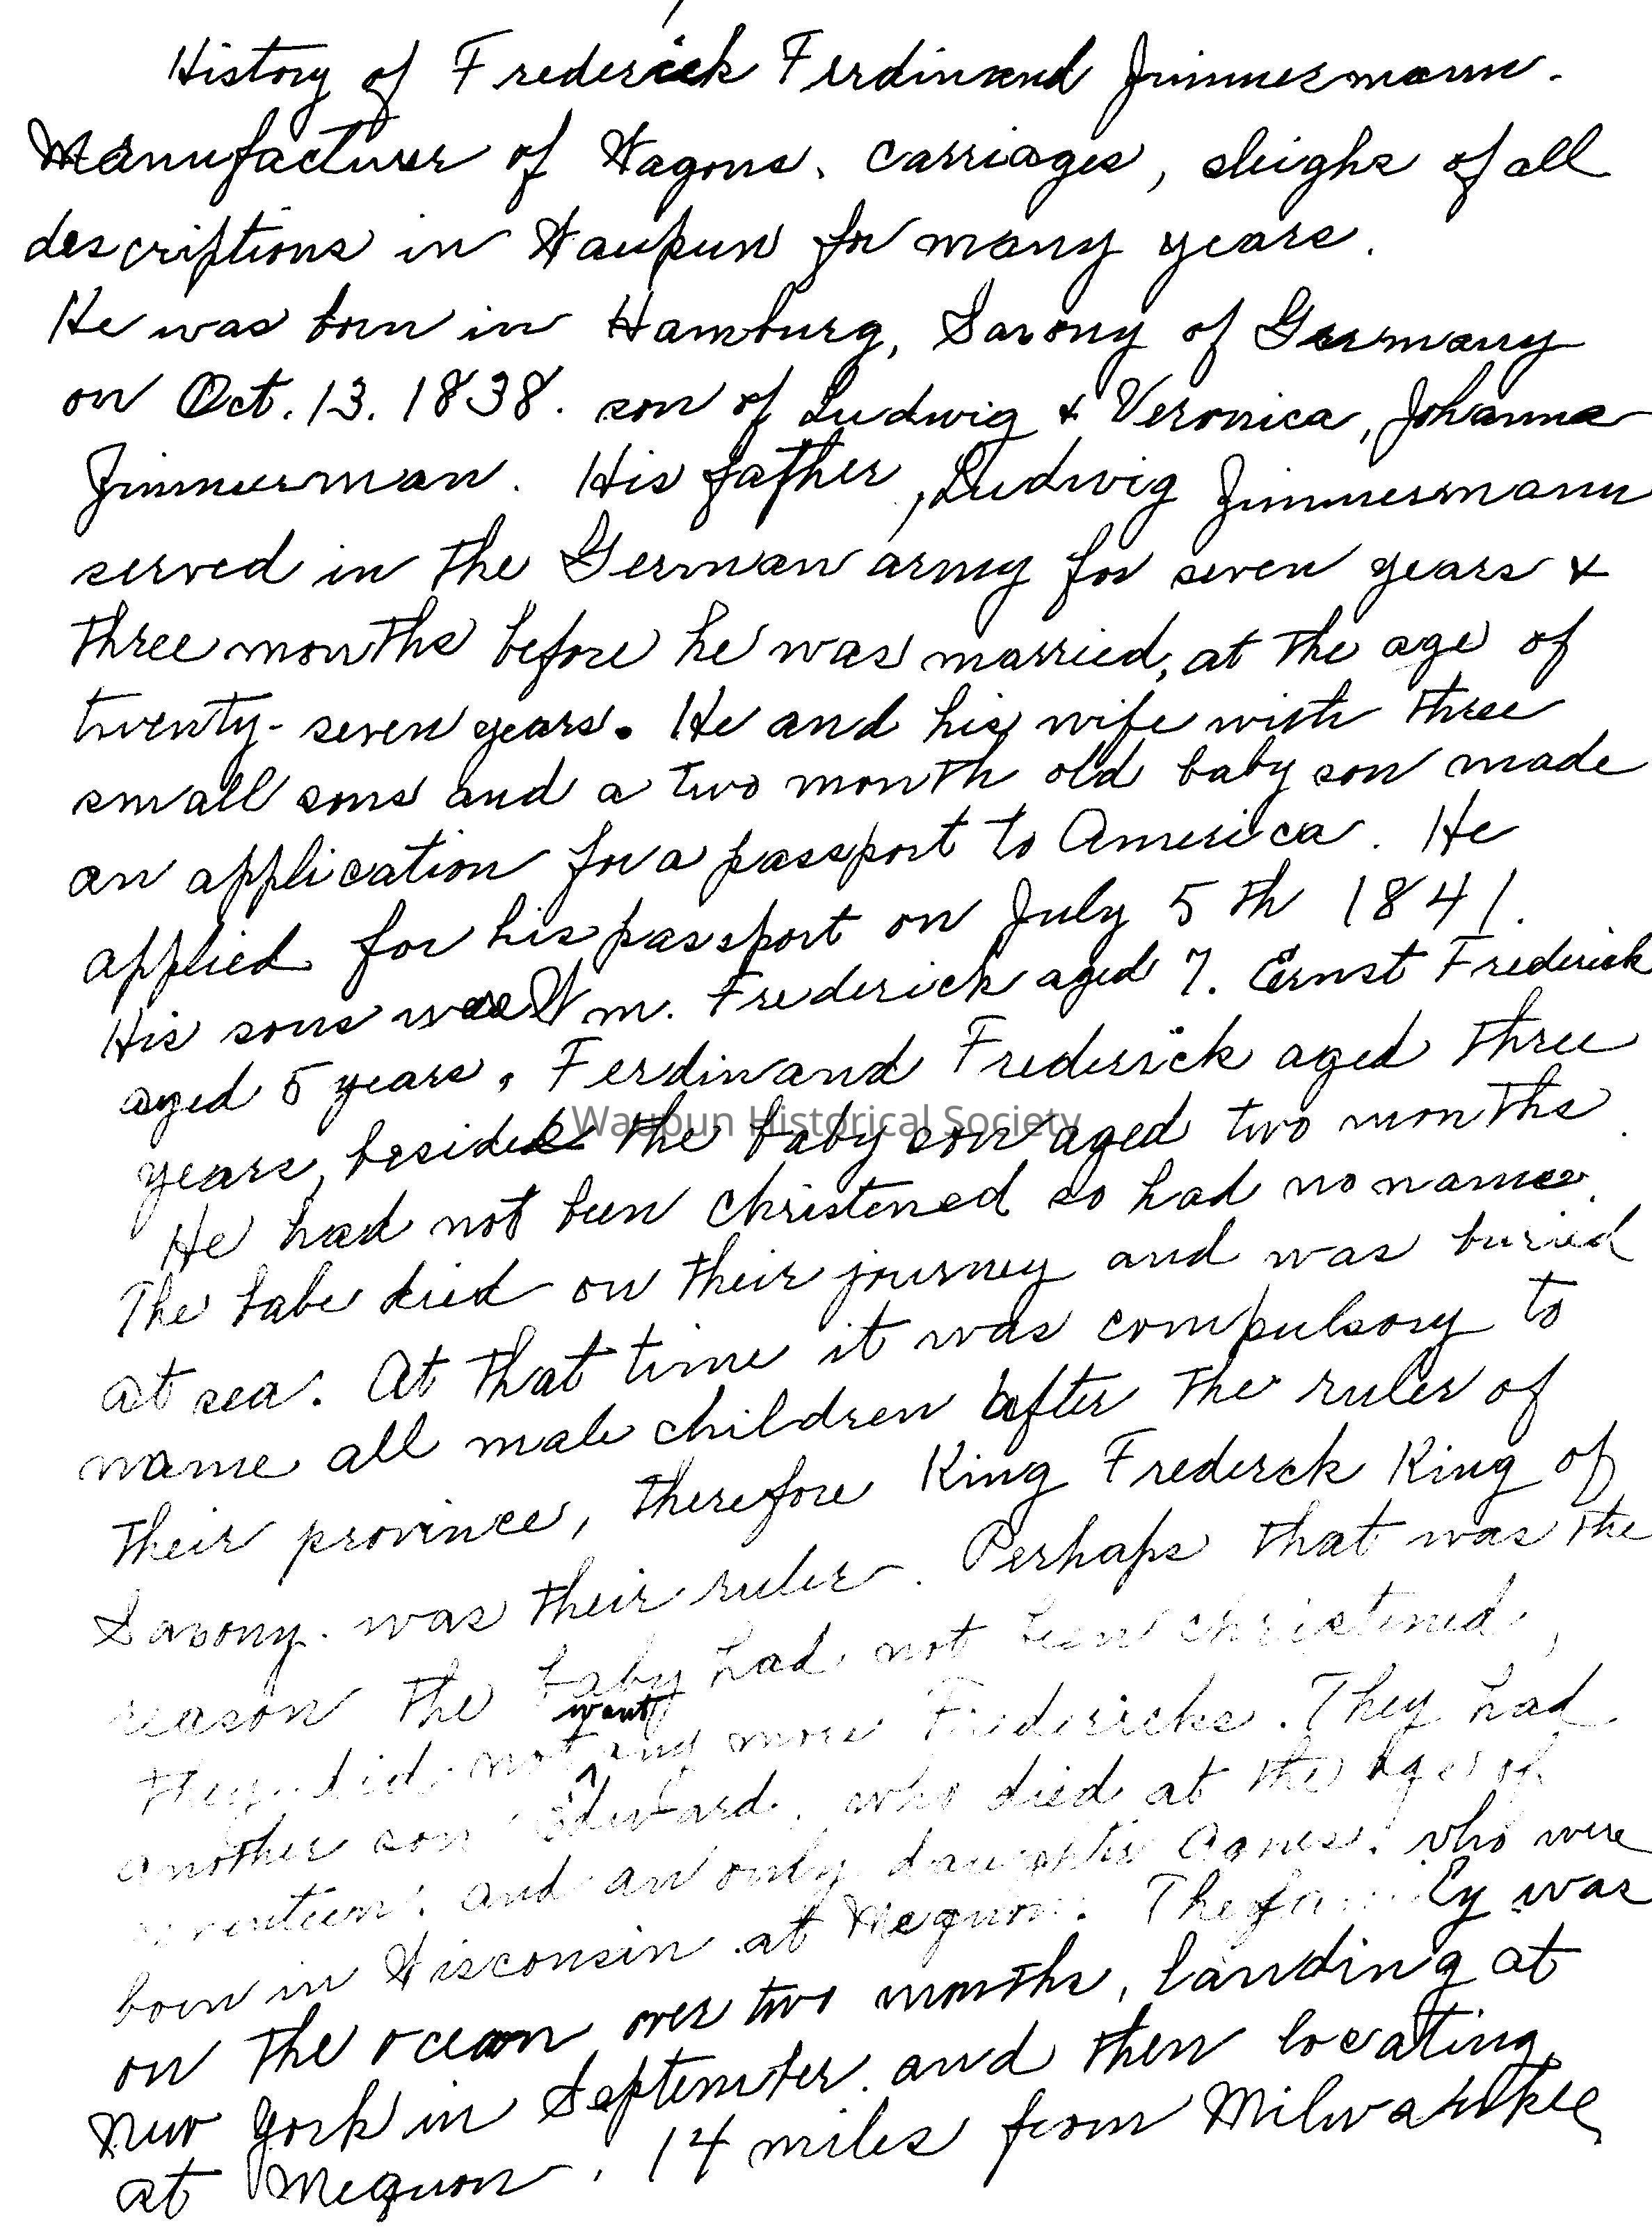 History of Frederick Ferdinand Zimmermann.
Manufacturer of Wagons. Carriages, sleighs of all
descriptions in Waupun for many years.
He was born in Hamburg, Saxony of Germany
on Oct. 13. 1838. son of Ludwig & Veronica, Johanna
Zimmerman. His father, Ludwig Zimmermann
served in the German army for seven years &
three months before he was married, at the age of
twenty-seven years. He and his wife with three
small sons and a two month old baby son made
an application for a passport to America. He
applied for his passport on July 5th 1841.
His sons were Wm. Frederick aged 7. Ernst Frederick
aged 5 years, Ferdinand Frederick aged three
years, besides the baby son aged two months.
Waupun Historical Society
He had not been christened so had no name.
The babe died on their journey and was buried
at sea. At that time it was compulsory to
name all male children after the ruler of
their province, therefore King Frederick King of
Saxony. was their ruler. Perhaps that was the
reason the baby had not been christened,
they did not want any more Fredericks. They had
another son Edward, who died at the age of
seventeen. and an only daughter Agnes. who were
born in Wisconsin at Mequon. The family was
on the ocean over two months, landing at
New York in September. and then locating
at Mequon, 14 miles from Milwaukee